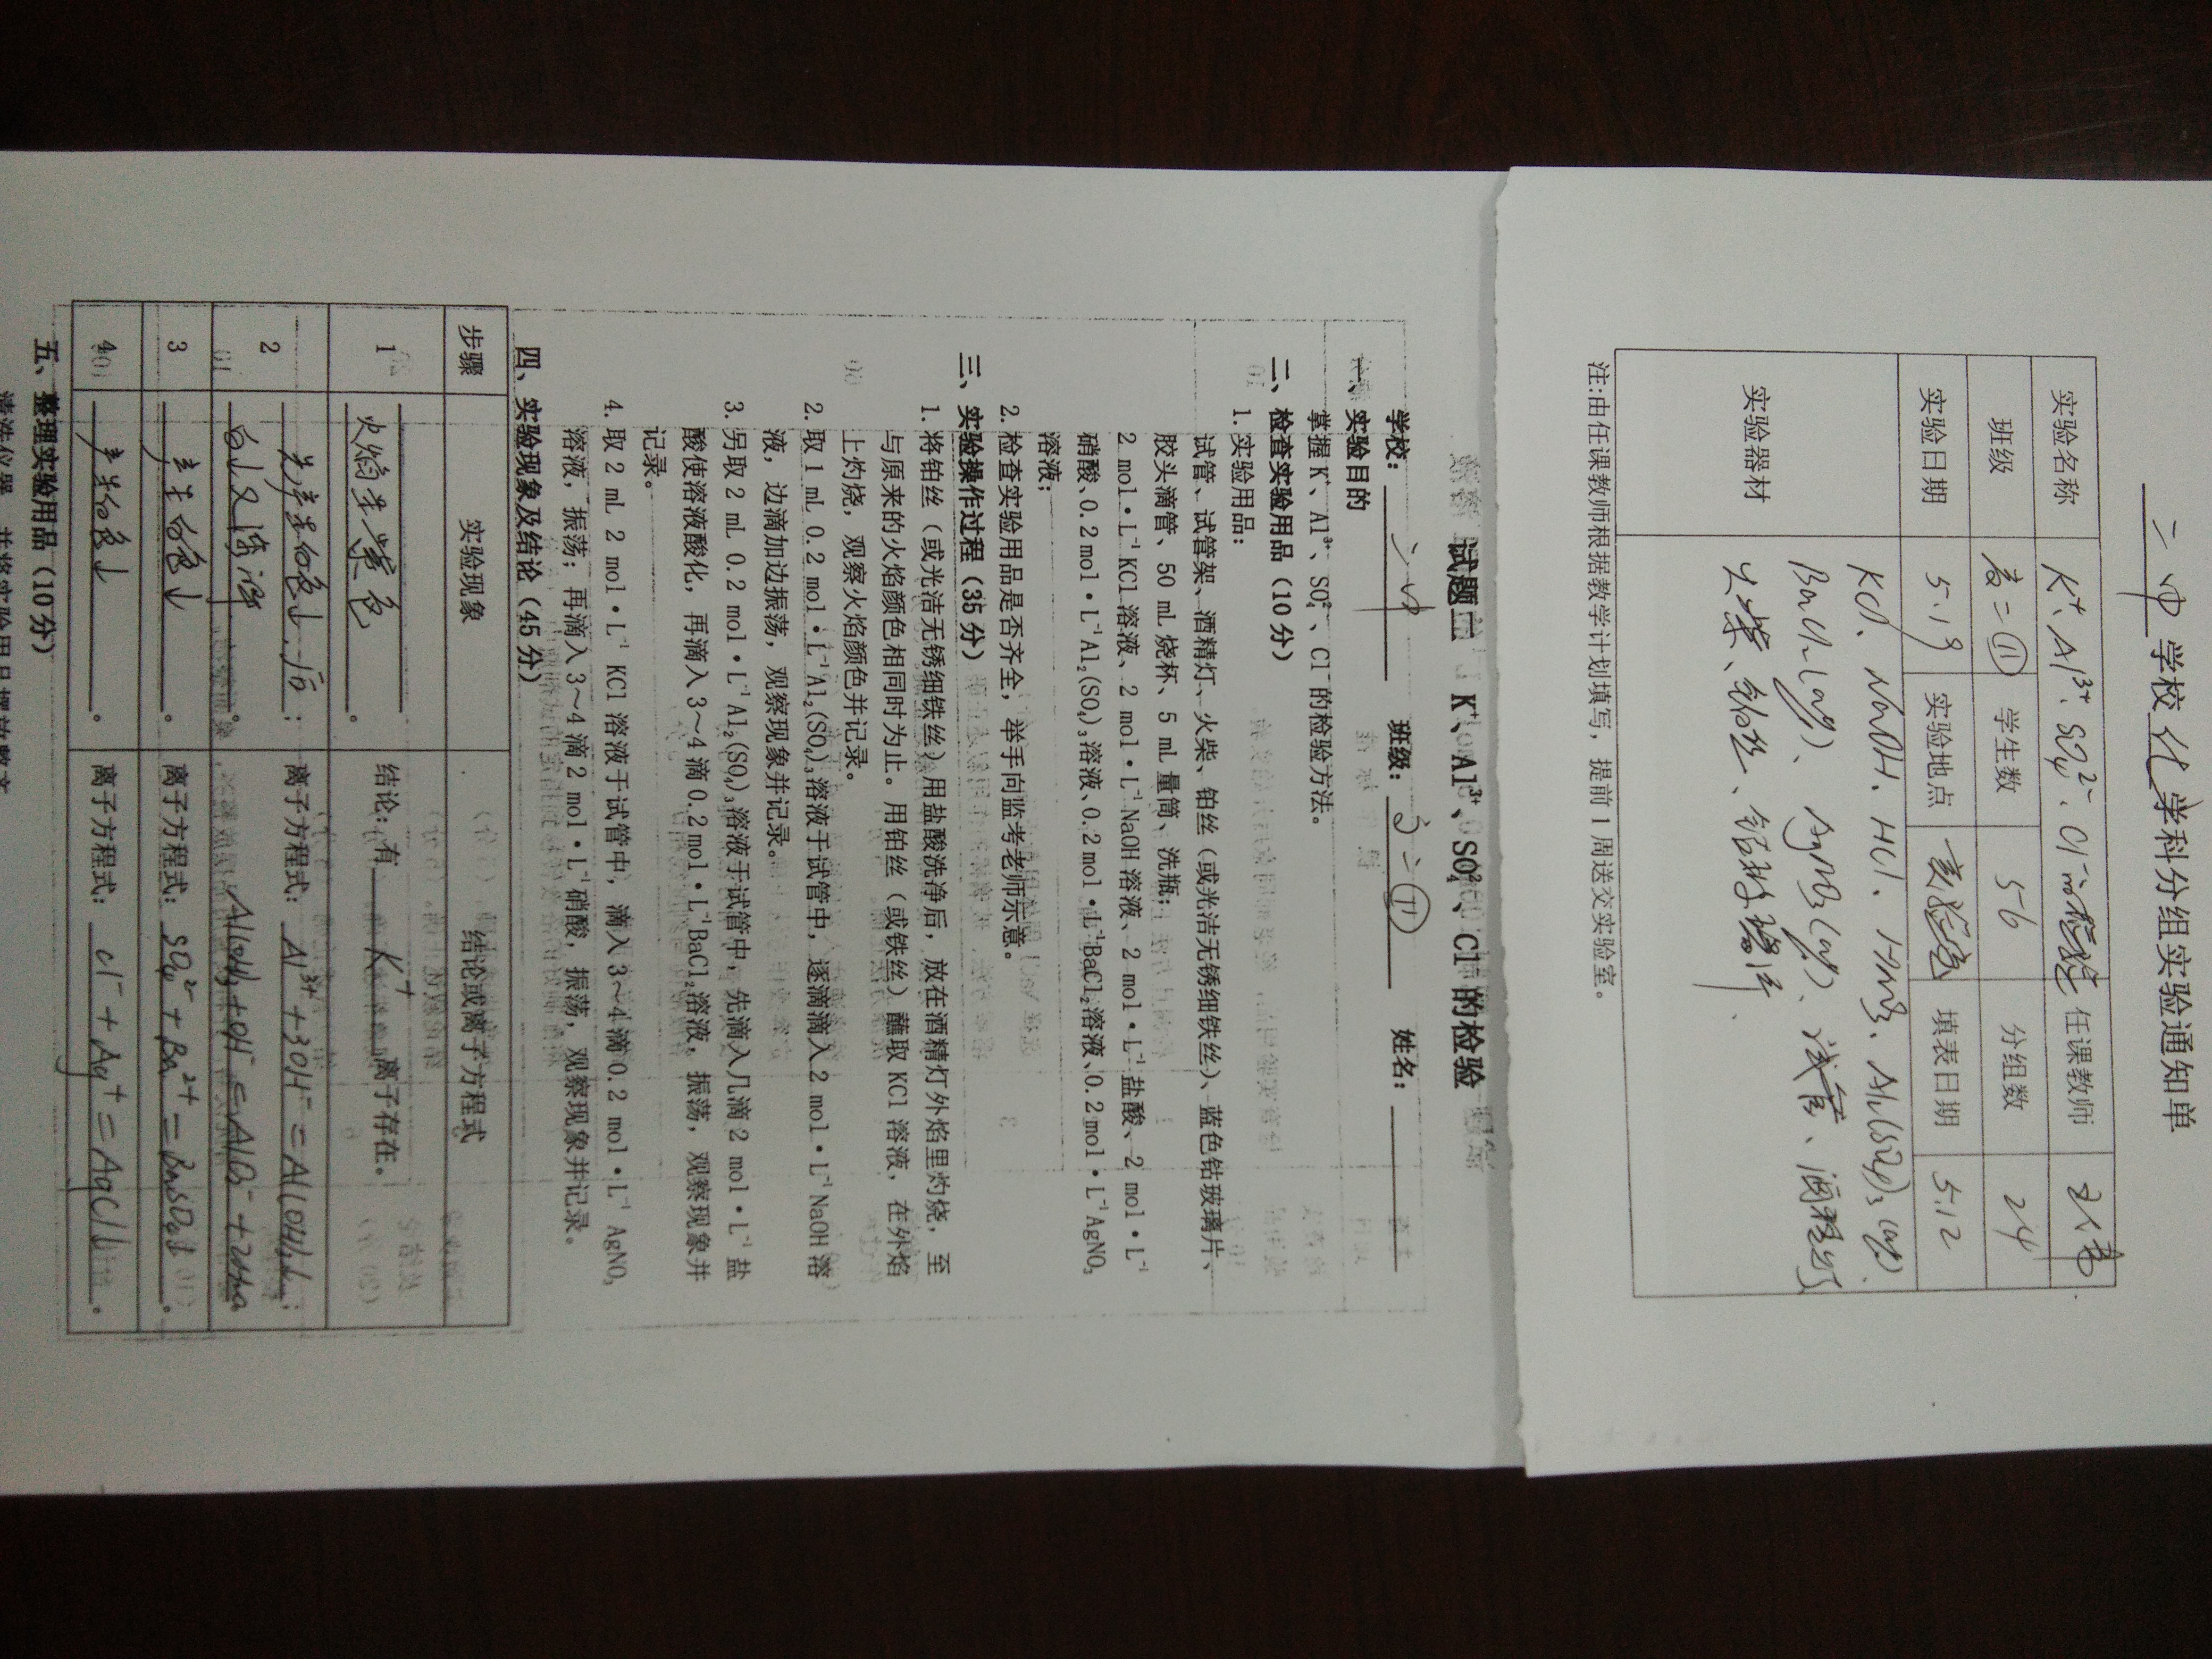 二中学校化学科分组实验通知单
实验名称 K⁺、Al³⁺、SO₄²⁻、Cl⁻ 任课教师
班级 高二(11) 学生数 56 分组数 24
实验日期 5.19 实验地点 实验室 填表日期 5.12
实验器材 KCl、NaOH、HCl、HNO₃、Al₂(SO₄)₃(aq)、
BaCl₂(aq)、AgNO₃(aq)、试管、酒精灯
火柴、铂丝、钴玻璃片、
注:由任课教师根据教学计划填写，提前1周送交实验室。
试题二 K⁺、Al³⁺、SO₄²⁻、Cl⁻的检验
学校：二中 班级：高二(11) 姓名：
一、实验目的
掌握K⁺、Al³⁺、SO₄²⁻、Cl⁻的检验方法。
二、检查实验用品（10分）
1. 实验用品：
试管、试管架、酒精灯、火柴、铂丝（或光洁无锈细铁丝）、蓝色钴玻璃片、
胶头滴管、50 mL 烧杯、5 mL 量筒、洗瓶；
2 mol·L⁻¹KCl溶液、2 mol·L⁻¹NaOH溶液、2 mol·L⁻¹盐酸、2 mol·L⁻¹
硝酸、0.2 mol·L⁻¹Al₂(SO₄)₃溶液、0.2 mol·L⁻¹BaCl₂溶液、0.2 mol·L⁻¹AgNO₃
溶液；
2. 检查实验用品是否齐全，举手向监考老师示意。
三、实验操作过程（35分）
1. 将铂丝（或光洁无锈细铁丝）用盐酸洗净后，放在酒精灯外焰里灼烧，至
与原来的火焰颜色相同时为止。用铂丝（或铁丝）蘸取KCl溶液，在外焰
上灼烧，观察火焰颜色并记录。
2. 取1 mL 0.2 mol·L⁻¹Al₂(SO₄)₃溶液于试管中，逐滴滴入2 mol·L⁻¹NaOH溶
液，边滴加边振荡，观察现象并记录。
3. 另取2 mL 0.2 mol·L⁻¹Al₂(SO₄)₃溶液于试管中，先滴入几滴2 mol·L⁻¹盐
酸使溶液酸化，再滴入3～4滴0.2 mol·L⁻¹BaCl₂溶液，振荡，观察现象并
记录。
4. 取2 mL 2 mol·L⁻¹ KCl溶液于试管中，滴入3～4滴0.2 mol·L⁻¹ AgNO₃
溶液，振荡；再滴入3～4滴2 mol·L⁻¹硝酸，振荡，观察现象并记录。
四、实验现象及结论（45分）
步骤 实验现象 结论或离子方程式
1 火焰呈紫色。 结论：有 K⁺ 离子存在。
2 先产生白色↓，后； 离子方程式：Al³⁺+3OH⁻=Al(OH)₃↓；
白↓又溶解。 Al(OH)₃+OH⁻=AlO₂⁻+2H₂O
3 产生白色↓。 离子方程式：SO₄²⁻+Ba²⁺=BaSO₄↓。
4 产生白色↓。 离子方程式：Cl⁻+Ag⁺=AgCl↓。
五、整理实验用品（10分）
清洗仪器，并将实验用品摆放整齐